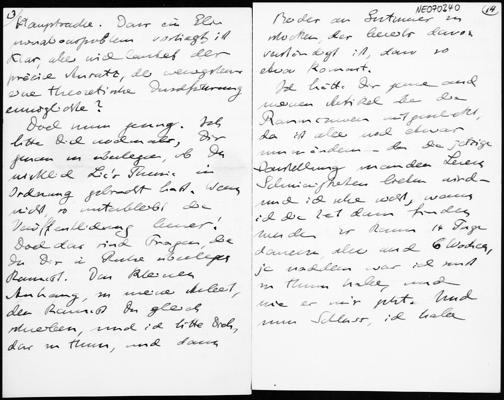 13)
Hauptsache. Dass ein Eben
vorliegt ist
klar, aber wie lautet der
präzise Ansatz, der wenigstens
eine theoretische Durchführung
ermöglichte?
Doch nun genug. Ich
bitte Dich nochmals, Dir
genau zu überlegen, ob Du
wirklich Dein Thema in
Ordnung gebracht hast. Wenn
nicht, so unterbleibt die
Veröffentlichung besser!
Doch das sind Fragen, die
Du Dir in Ruhe überlegen
kannst. Den kleinen
Anhang, zu meiner Arbeit,
den kannst Du gleich
schreiben, und ich bitte Dich,
das zu tun, und dann
NE070240
14
Bieder an
der bereits davon
verständigt ist, dass so
etwas kommt.
Ich hätte Dir gerne auch
meinen Artikel bei den
mitgeschickt,
da ist aber noch etwas
umzuändern – da die jetzige
Darstellung manchem Leser
Schwierigkeiten bieten wird –
und ich weiss nicht, wann
ich die Zeit dazu finden
werde. Es kann 14 Tage
dauern, aber auch 6 Wochen,
je nachdem was ich sonst
zu thun habe, und
wie es mir geht. Und
nun Schluss, ich habe